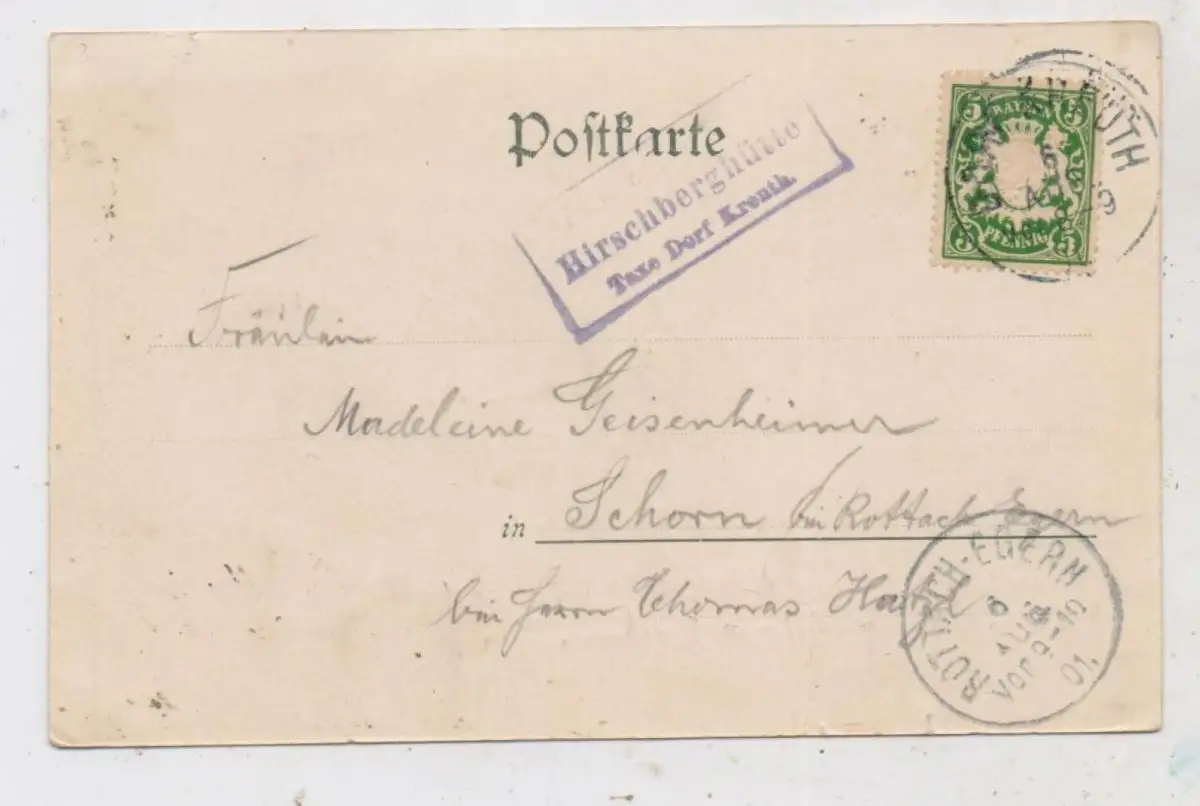 Postkarte
Hirschberghütte
Taxe Dorf Kreuth.
5 BAYERN 5
5 PFENNIG 5
Fräulein
Madeleine Geisenheimer
in Schorn bei Rottach Egern
bei Herrn Thomas
ROTTACH-EGERN
6
AUG
Vor 9-10
01.